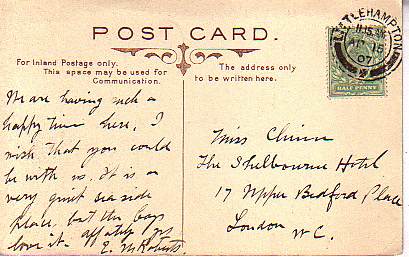 POST CARD.
For Inland Postage only.
This space may be used for
Communication.
The address only
to be written here.
LITTLEHAMPTON
11.15 AM
AP 15
07
HALF PENNY
We are having such a
happy time here, I
wish that you could
be with us. It is a
very quiet sea side
place, but the boys
love it. affately yrs
E. McRoberts.
Miss Chinn
The Shelbourne Hotel
17 Upper Bedford Place
London
W.C.